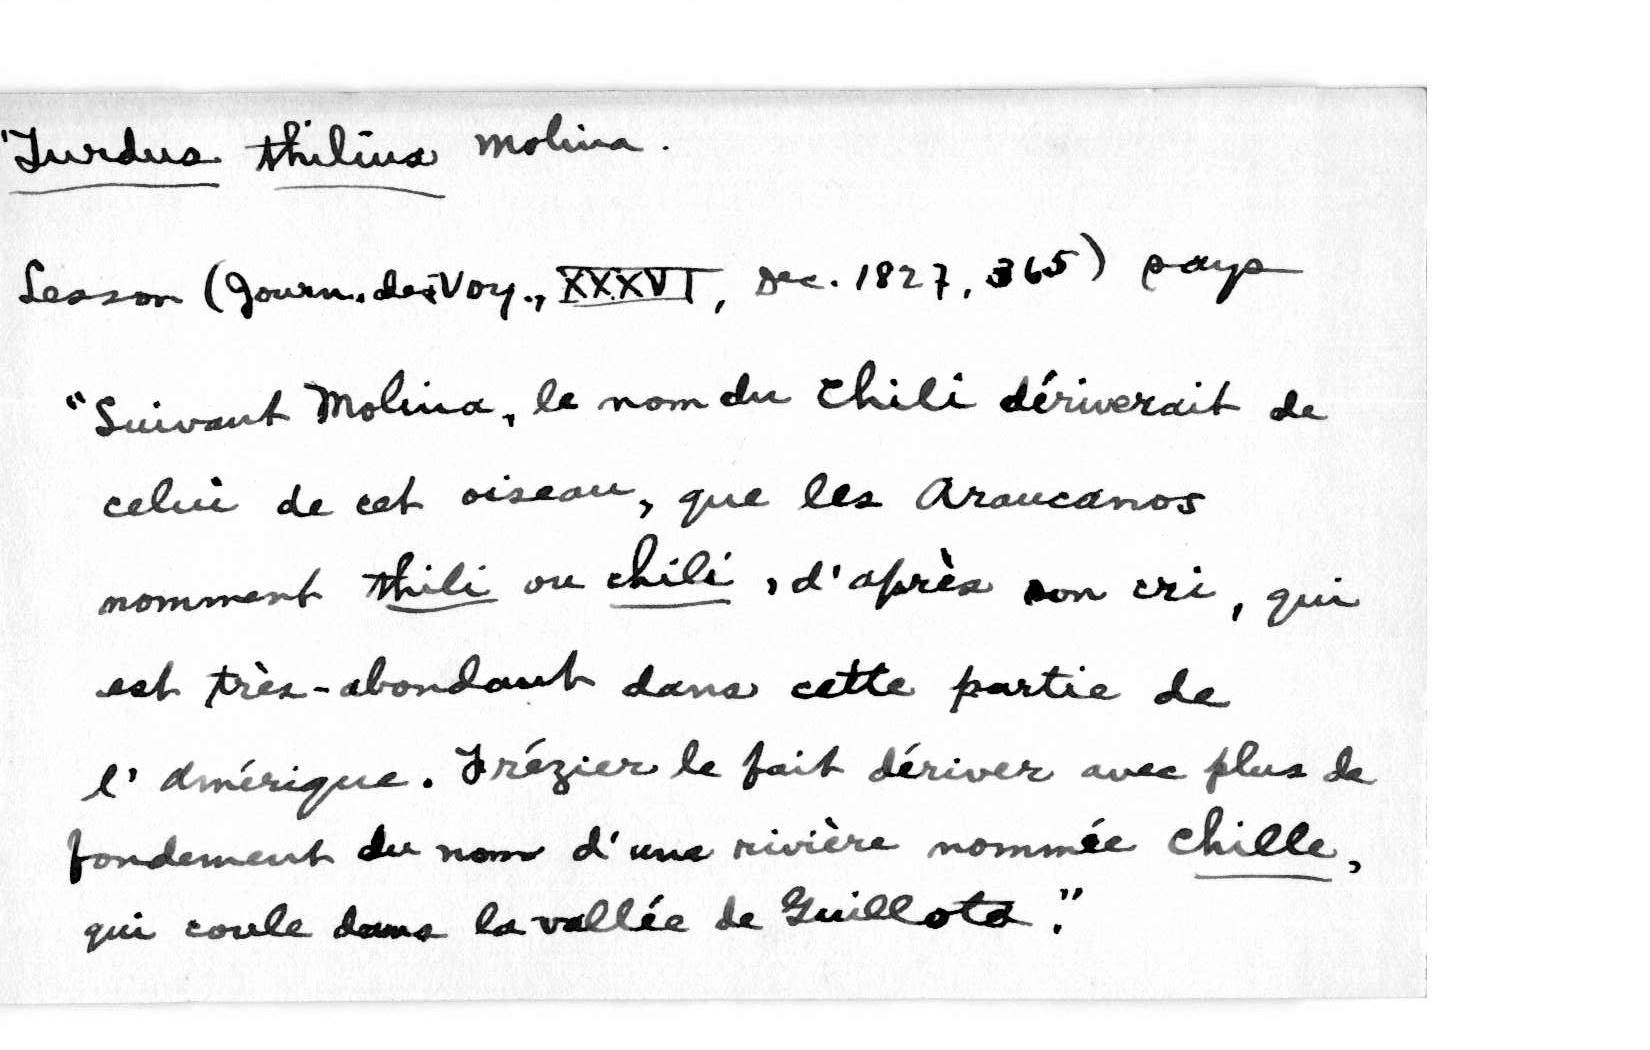 "Turdus thilius Molina.
Lesson (Journ. des Voy., XXXVI, Dec. 1827, 365) says
"Suivant Molina, le nom du Chili dériverait de
celui de cet oiseau, que les Araucanos
nomment thili ou chili, d'après son cri, qui
est très-abondant dans cette partie de
l'Amérique. Frézier le fait dériver avec plus de
fondement du nom d'une rivière nommée Chille,
qui coule dans la vallée de Guillota."